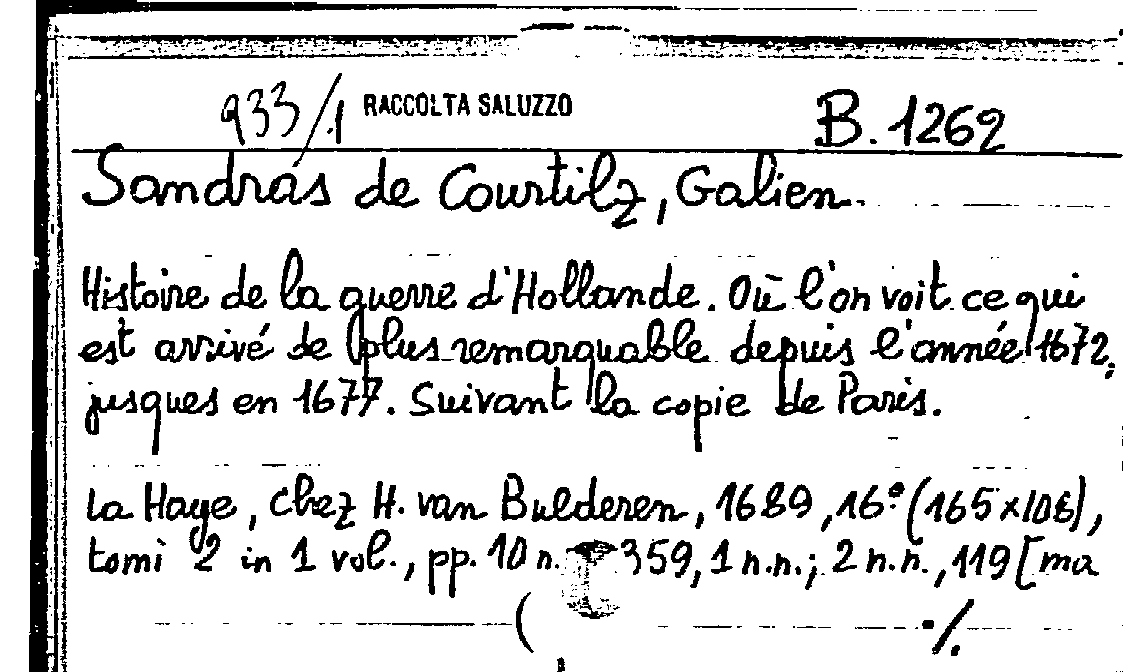 933/1 RACCOLTA SALUZZO B. 1262
Sandras de Courtilz, Galien.
Histoire de la guerre d'Hollande. Où l'on voit ce qui
est arrivé de plus remarquable depuis l'année 1672,
jusques en 1677. Suivant la copie de Paris.
La Haye, chez H. van Bulderen, 1689, 16° (165x106),
tomi 2 in 1 vol., pp. 10 n. 359, 1 n.n.; 2 n.n., 119 [ma
./.